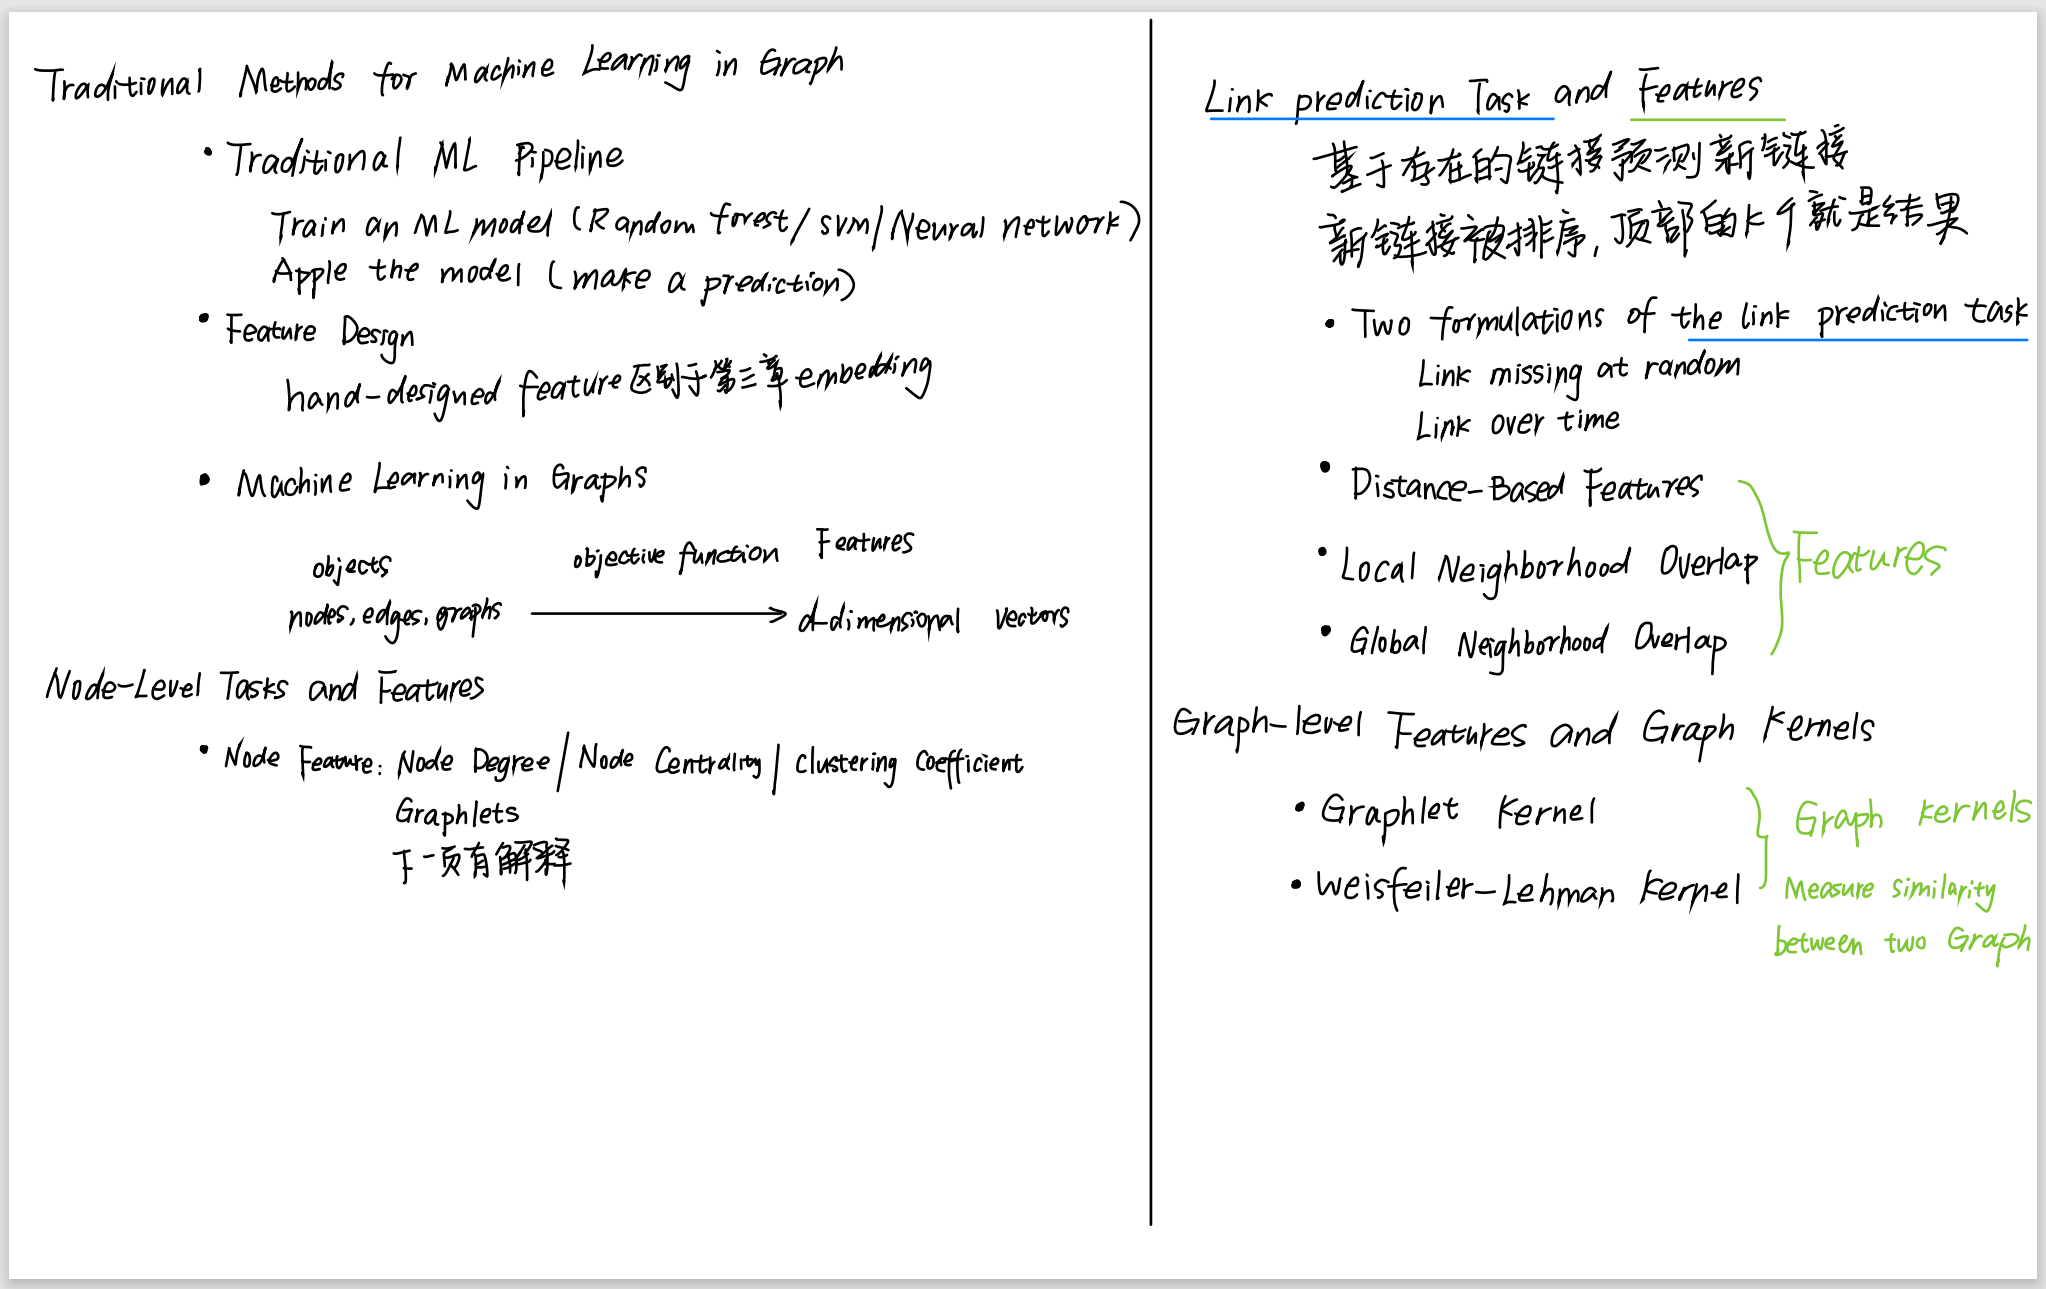 Traditional Methods for Machine Learning in Graph
• Traditional ML Pipeline
Train an ML model (Random forest/svm/Neural network)
Apple the model (make a prediction)
• Feature Design
hand-designed feature 区别于第三章embedding
• Machine Learning in Graphs
objects objective function Features
nodes, edges, graphs → d-dimensional vectors
Node-Level Tasks and Features
• Node Feature: Node Degree/Node Centrality/clustering Coefficient
Graphlets
下一页有解释
Link prediction Task and Features
基于存在的链接预测新链接
新链接被排序,顶部的K个就是结果
• Two formulations of the link prediction task
Link missing at random
Link over time
• Distance-Based Features
• Local Neighborhood Overlap
Features
• Global Neighborhood Overlap
Graph-level Features and Graph Kernels
• Graphlet Kernel
Graph Kernels
• Weisfeiler-Lehman Kernel
Measure similarity
between two Graph